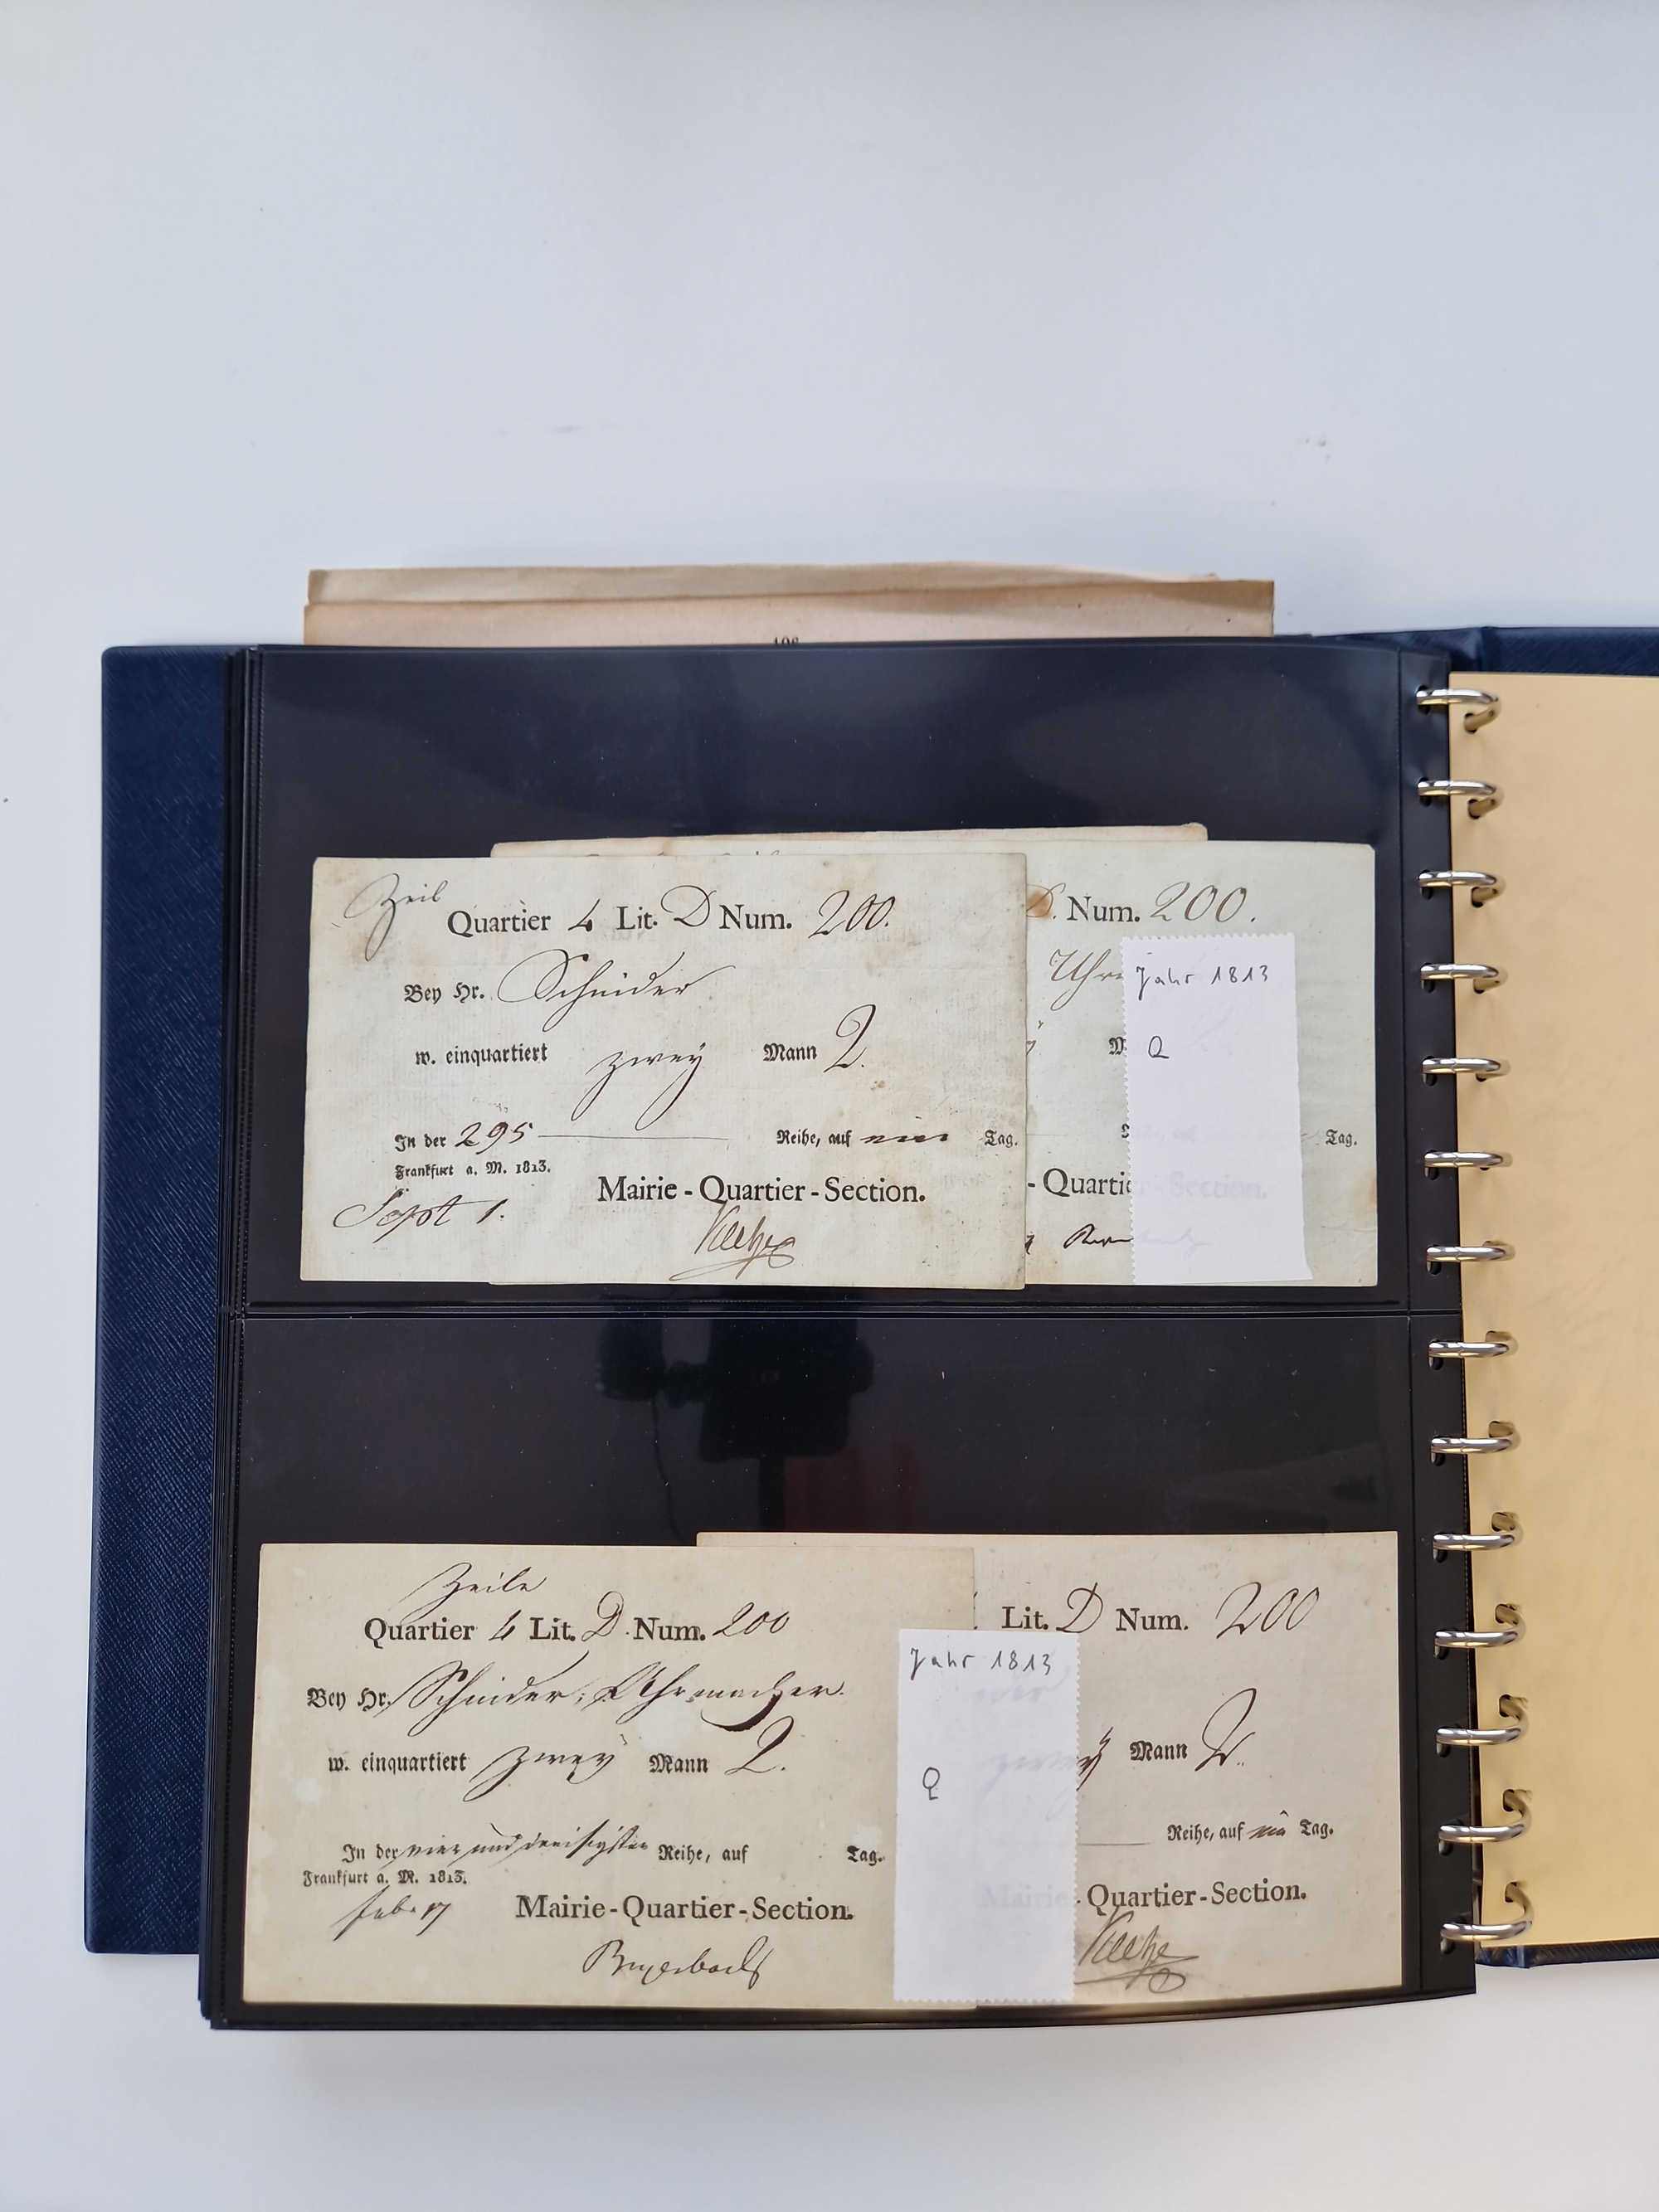 106
Zeil
Quartier 4 Lit. D Num. 200.
Bey Hr. Schnider
w. einquartiert zwey Mann 2.
In der 295 Reihe, auf ein Tag.
Frankfurt a. M. 1813.
Sept 1.
Mairie-Quartier-Section.
D. Num. 200.
Jahr 1813
Q
Tag.
- Quartie
Zeile
Quartier 4 Lit. D. Num. 200
Bey Hr. Schnider, Uhrmacher.
w. einquartiert zwey Mann 2.
In der vier und dreisigsten Reihe, auf Tag.
Frankfurt a. M. 1813.
Feb. 17
Mairie-Quartier-Section.
Lit. D Num. 200
Jahr 1813
Q
Mann 2.
Reihe, auf ein Tag.
Mairie-Quartier-Section.